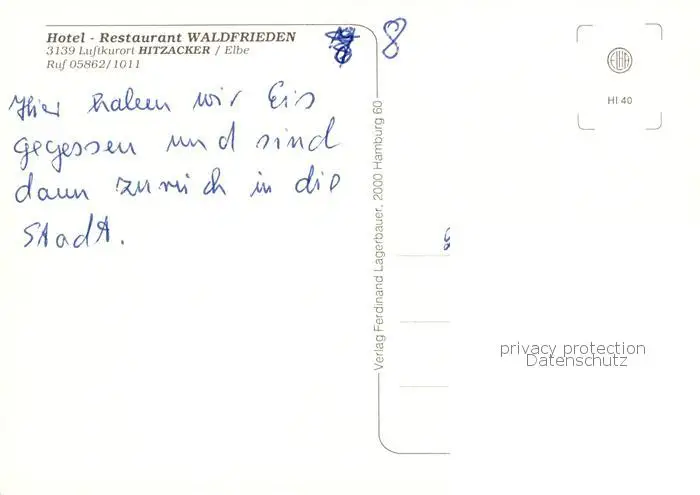 Hotel - Restaurant WALDFRIEDEN
3139 Luftkurort HITZACKER / Elbe
Ruf 05862/1011
8
Hier haben wir Eis
gegessen und sind
dann zurück in die
Stadt.
Verlag Ferdinand Lagerbauer, 2000 Hamburg 60
HI 40
privacy protection
Datenschutz